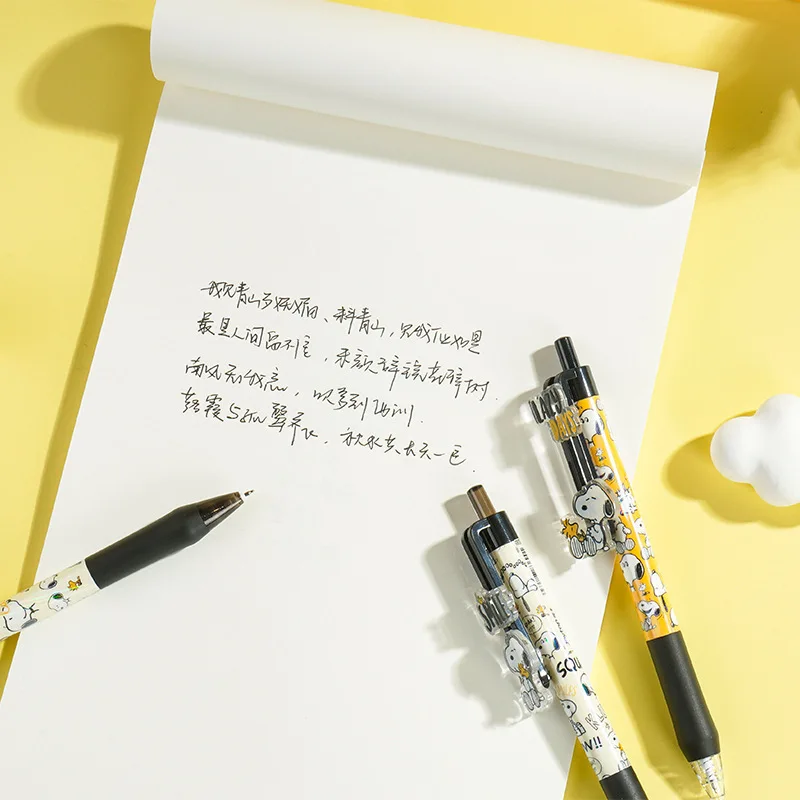 我见青山多妩媚、料青山,见我应如是
最是人间留不住,朱颜辞镜花辞树.
南风知我意,吹梦到西洲.
落霞与孤鹜齐飞,秋水共长天一色.
LAZY
DAYS
SQU